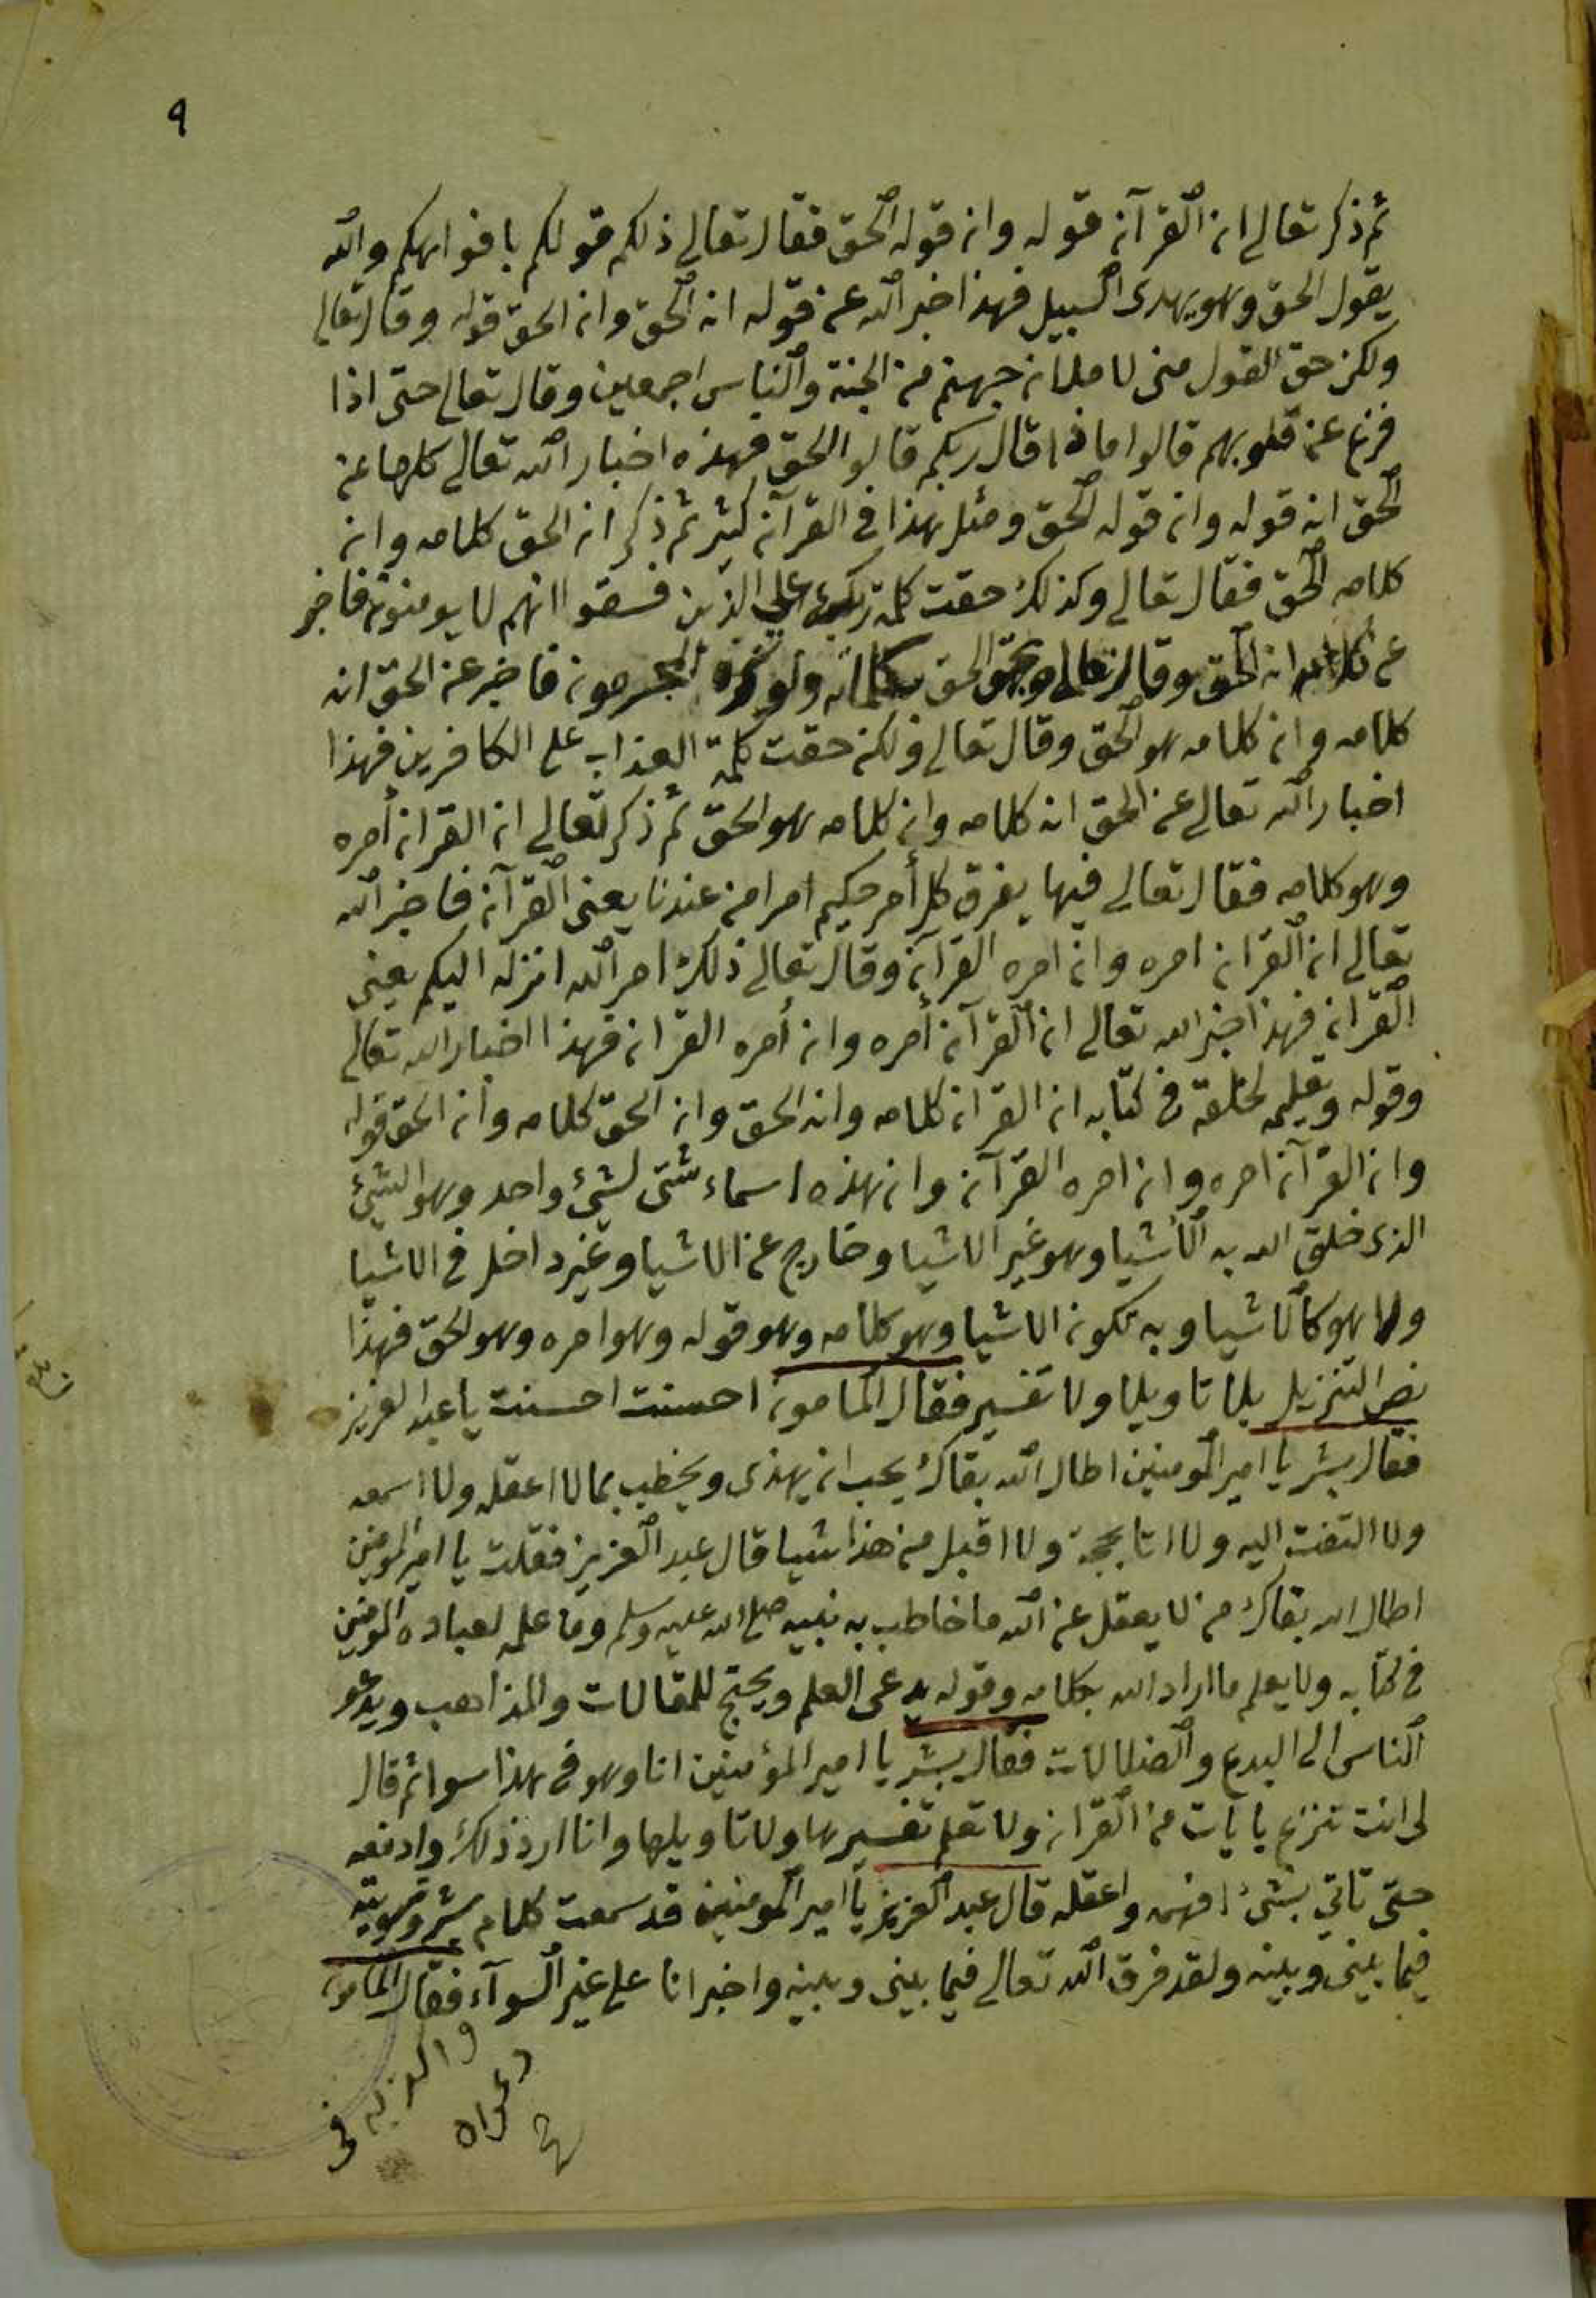 ٩
ثم ذكر تعالى ان القرآن قوله وان قوله الحق فقال تعالى ذلكم قولكم بافواهكم والله
يقول الحق وهو يهدى السبيل فهذا خبر الله عن قوله انه الحق وان الحق قوله وقال تعالى
ولكن حق القول منى لاملان جهنم من الجنة والناس اجمعين وقال تعالى حتى اذا
فزع عن قلوبهم قالوا ماذا قال ربكم قالوا الحق فهذه اخبار الله تعالى كلها عن
الحق انه قوله وان قوله الحق ومثل هذا فى القرآن كثير ثم ذكر ان الحق كلامه وان
كلامه الحق فقال تعالى وكذلك حقت كلمة ربك على الذين فسقوا انهم لا يومنون فاخبر
عن كلامه انه الحق وقال تعالى ويحق الحق بكلماته ولو كره المجرمون فاخبر عن الحق انه
كلامه وان كلامه هو الحق وقال تعالى ولكن حقت كلمة العذاب على الكافرين فهذا
اخبار الله تعالى عن الحق انه كلامه وان كلامه هو الحق ثم ذكر تعالى ان القران أمره
وهو كلامه فقال تعالى فيها يفرق كل أمر حكيم امرا من عندنا يعنى القرآن فاخبر الله
تعالى ان القران امره وان امره القرآن وقال تعالى ذلك امر الله انزله اليكم يعنى
القران فهذا خبر الله تعالى ان القرآن أمره وان أمره القران فهذا اخبار الله تعالى
وقوله وتعليمه لخلقه فى كتابه ان القران كلامه وانه الحق وان الحق كلامه وأن الحق قوله
وان القرآن امره وان امره القرآن وان هذه اسماء شتى لشئ واحد وهو الشئ
الذى خلق الله به الأشيا وهو غير الاشيا وخارج عن الاشيا وغير داخل فى الاشيا
ولا هو كالاشيا وبه تكون الاشيا وهو كلامه وهو قوله وهو امره وهو الحق فهذا
نص التنزيل بلا تاويلا ولا تفسير فقال المامون احسنت احسنت يا عبد العزيز
فقال بشر يا امير المومنين اطال الله بقاك يحب ان يهذى ويخطب بما لا اعقله ولا اسمعه
ولا التفت اليه ولا اتا بحجة ولا اقبل من هذا شيا قال عبد العزيز فقلت يا امير المومنين
اطال الله بقاك من لا يعقل عن الله ما خاطب به نبيه صلى الله عليه وسلم وما علمه لعباده المومنين
فى كتابه ولا يعلم ما اراد الله بكلامه وقوله يدعى العلم ويحتج للمقالات والمذاهب ويدعو
الناس الى البدع والضلالات فقال بشر يا امير المؤمنين انا وهو فى هذا سوا ثم قال
لى انت تنزع بايات من القران ولا تعلم تفسيرها ولا تاويلها وانا ارد ذلك وادفعه
حتى تاتى بشئ افهمه واعقله قال عبد العزيز يا امير المومنين قد سمعت كلام بشر وتسويته
فيما بينى وبينه ولقد فرق الله تعالى فيما بينى وبينه واخبر انا على غير السوآء فقال المامون